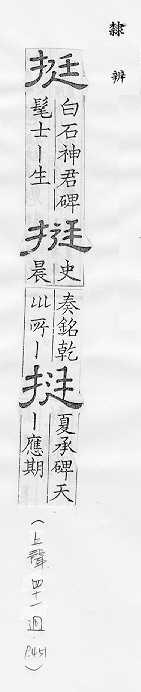 隸辨
挺
白石神君碑
髦士｜生
挺
史
晨
奏銘乾
巛所｜
挺
夏承碑天
｜應期
(上聲 四十一迥 P.451)